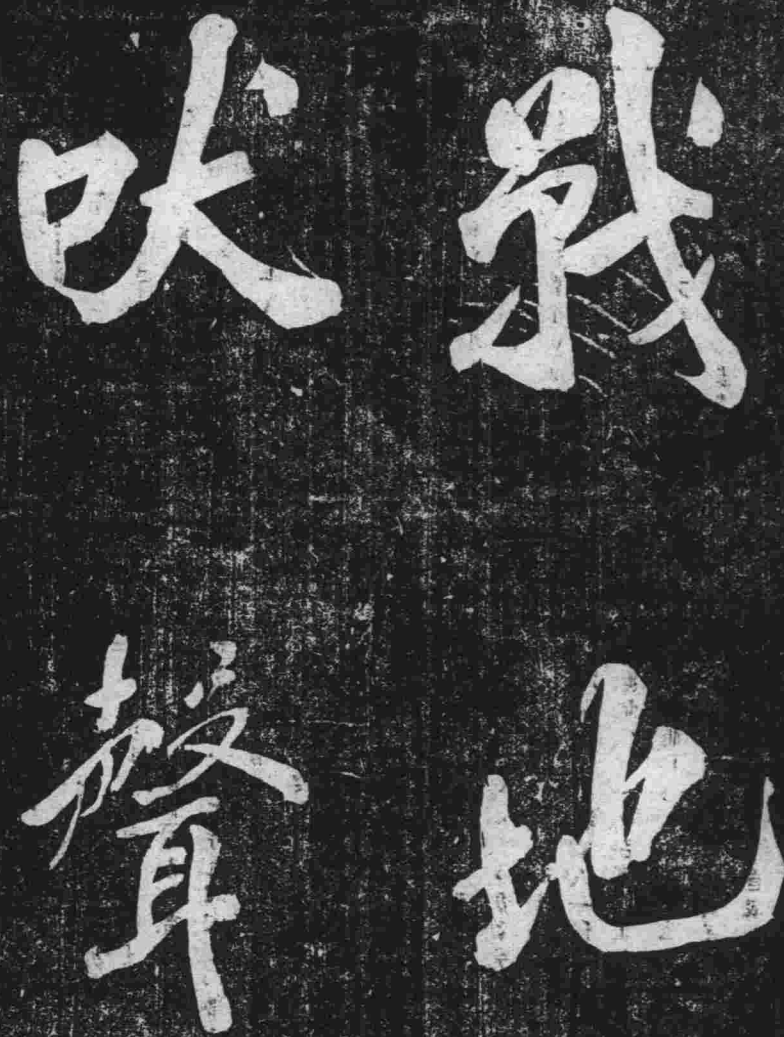 戰地
吠聲